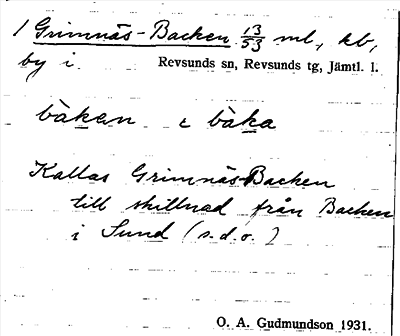 1 Grimnäs-Backen 13/53 ml, kb,
by i Revsunds sn, Revsunds tg, Jämtl. l.
bàkan ɛ bàka
Kallas Grimnäs-Backen
till skillnad från Backen
i Sund (s.d.o.)
O. A. Gudmundson 1931.